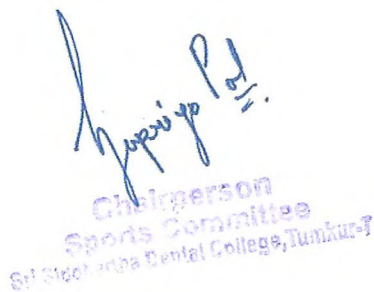 Supriyo Pal
Chairperson
Sports Committee
Sri Siddhartha Dental College, Tumkur-7